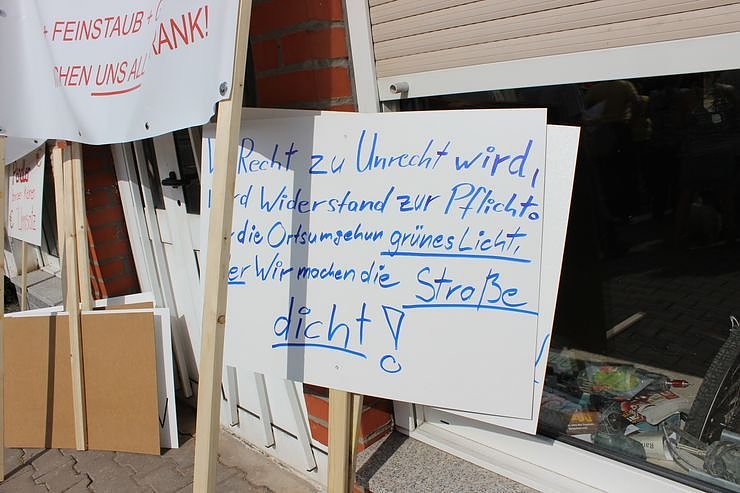 + FEINSTAUB +
CHEN UNS ALL
KRANK!
Recht zu Unrecht wird,
rd Widerstand zur Pflicht.
die Ortsumgehun grünes Licht,
er Wir machen die Straße
dicht!